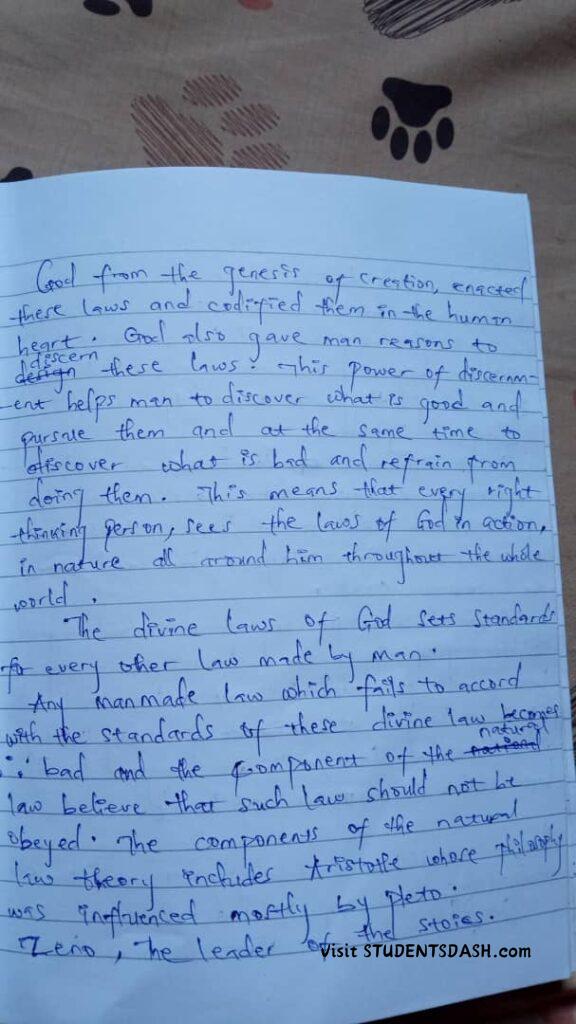 God from the genesis of creation, enacted
these laws and codified them in the human
heart. God also gave man reasons to
discern
design these laws. This power of discernm-
-ent helps man to discover what is good and
pursue them and at the same time to
discover what is bad and refrain from
doing them. This means that every right
thinking person, sees the laws of God in action,
in nature all around him throughout the whole
world.
The divine laws of God sets standards
for every other law made by man.
Any manmade law which fails to accord
with the standards of these divine law becomes
natural
bad and the component of the national
law believe that such law should not be
obeyed. The components of the natural
law theory includes Aristotle whose philosophy
was influenced mostly by pleto.
Zeno, The leader of the stoics.
Visit STUDENTSDASH.com